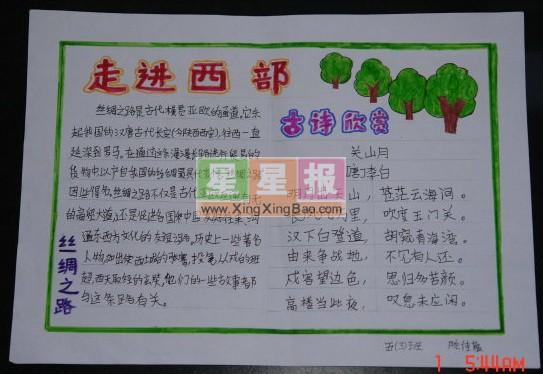 走进西部
丝绸之路是古代横贯亚欧的通道,它东
起我国的汉唐古代长安(今陕西西安),往西一直
延深到罗马。在通过这条漫漫长路进行贸易的
货物中以产自我国的丝绸最具代表
因此得名。丝绸之路不仅是古代
的商贸大道,还是促进各国和中
通东西方文化的友谊之路。历史上一些著名
人物,如出使西域的张骞,投笔从戎的班
超,西天取经的玄奘,他们的一些故事都
与这条路有关。
丝绸之路
古诗欣赏
关山月
唐李白
明月出天山,苍茫云海间。
里,吹度玉门关。
汉下白登道,胡窥青海湾。
由来争战地,不见有人还。
戍客望边色,思归多苦颜。
高楼当此夜,叹息未应闲。
星星报
www.XingXingBao.com
五(3)班
1 5:44AM